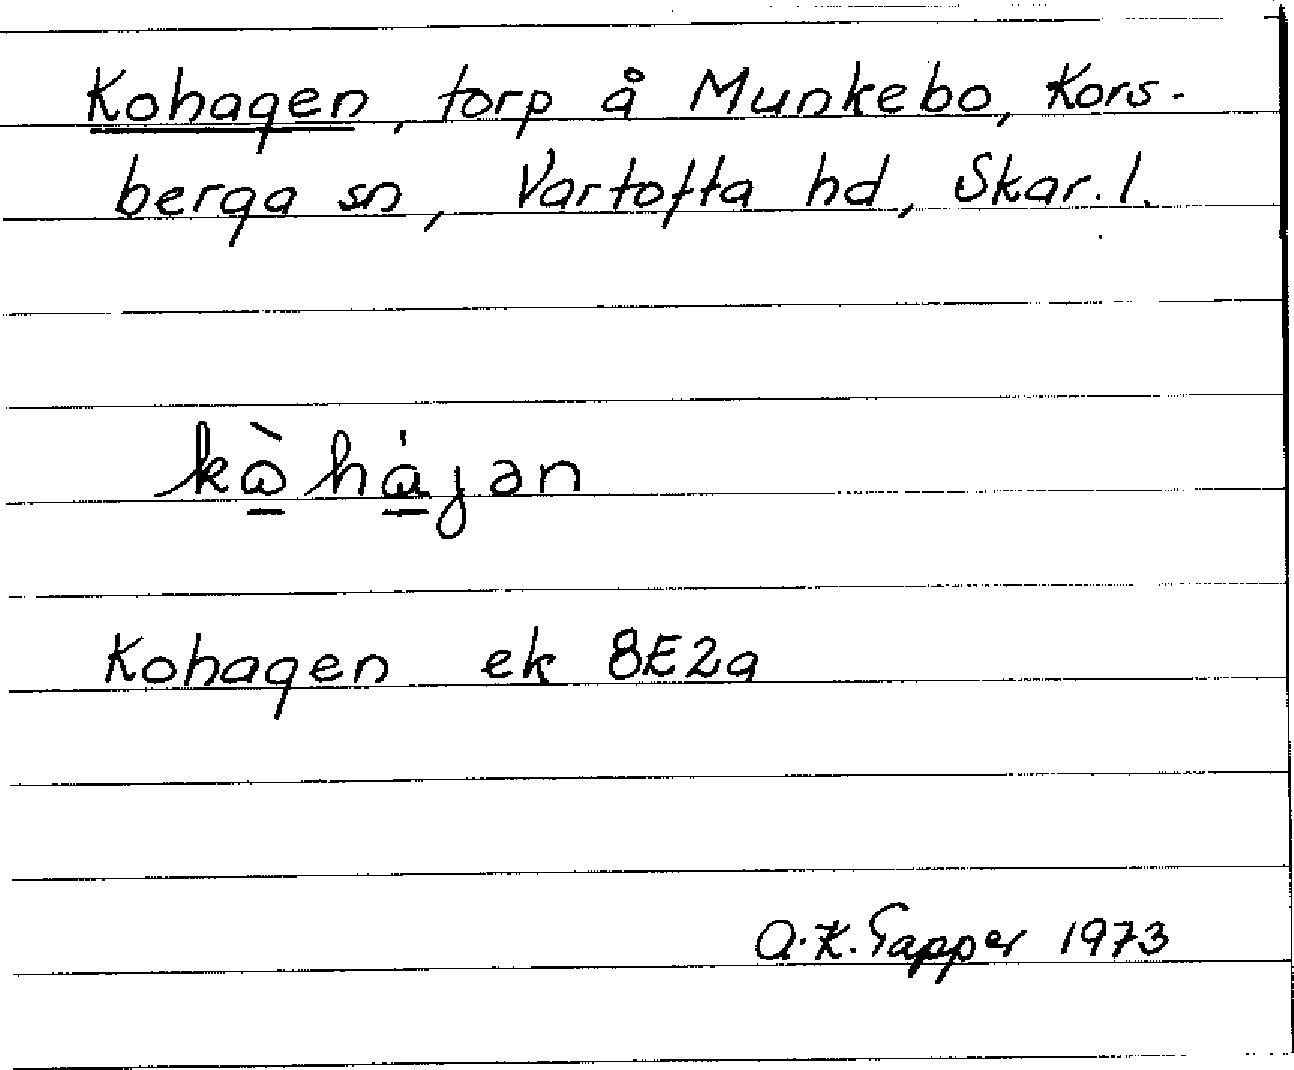 Kohagen, torp å Munkebo, Kors-
berga sn, Vartofta hd, Skar. l.
kὼ̲hα̲̇jan
Kohagen ek 8E2a
A.K. Tapper 1973